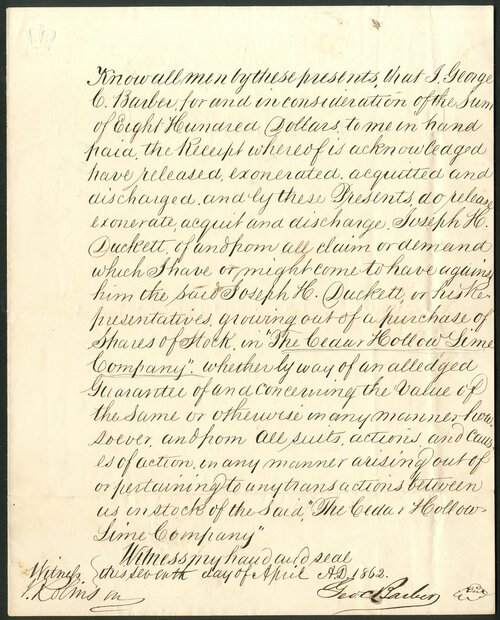 Know all men by these presents, that I, George
C. Barber, for and in consideration of the Sum
of Eight Hundred Dollars, to me in hand
paid, the Receipt whereof is acknowledged
have released, exonerated, acquitted and
discharged, and by these Presents, do, release
exonerate, acquit and discharge, Joseph H.
Duckett, of and from all claim or demand
which I have or might come to have against
him the said Joseph H. Duckett, or his Re-
presentatives, growing out of a purchase of
Shares of Stock, in "The Cedar Hollow Lime
Company", whether by way of an alledged
Guarantee of and concerning the value of
the same or otherwise in any manner how
soever, and from all suits, actions, and caus-
es of action, in any manner arising out of
or pertaining to any transactions between
us in stock of the said, "The Cedar Hollow-
Lime Company"
Witness my hand and seal
this seventh day of April A.D. 1862.
Witness
Geo C Barber